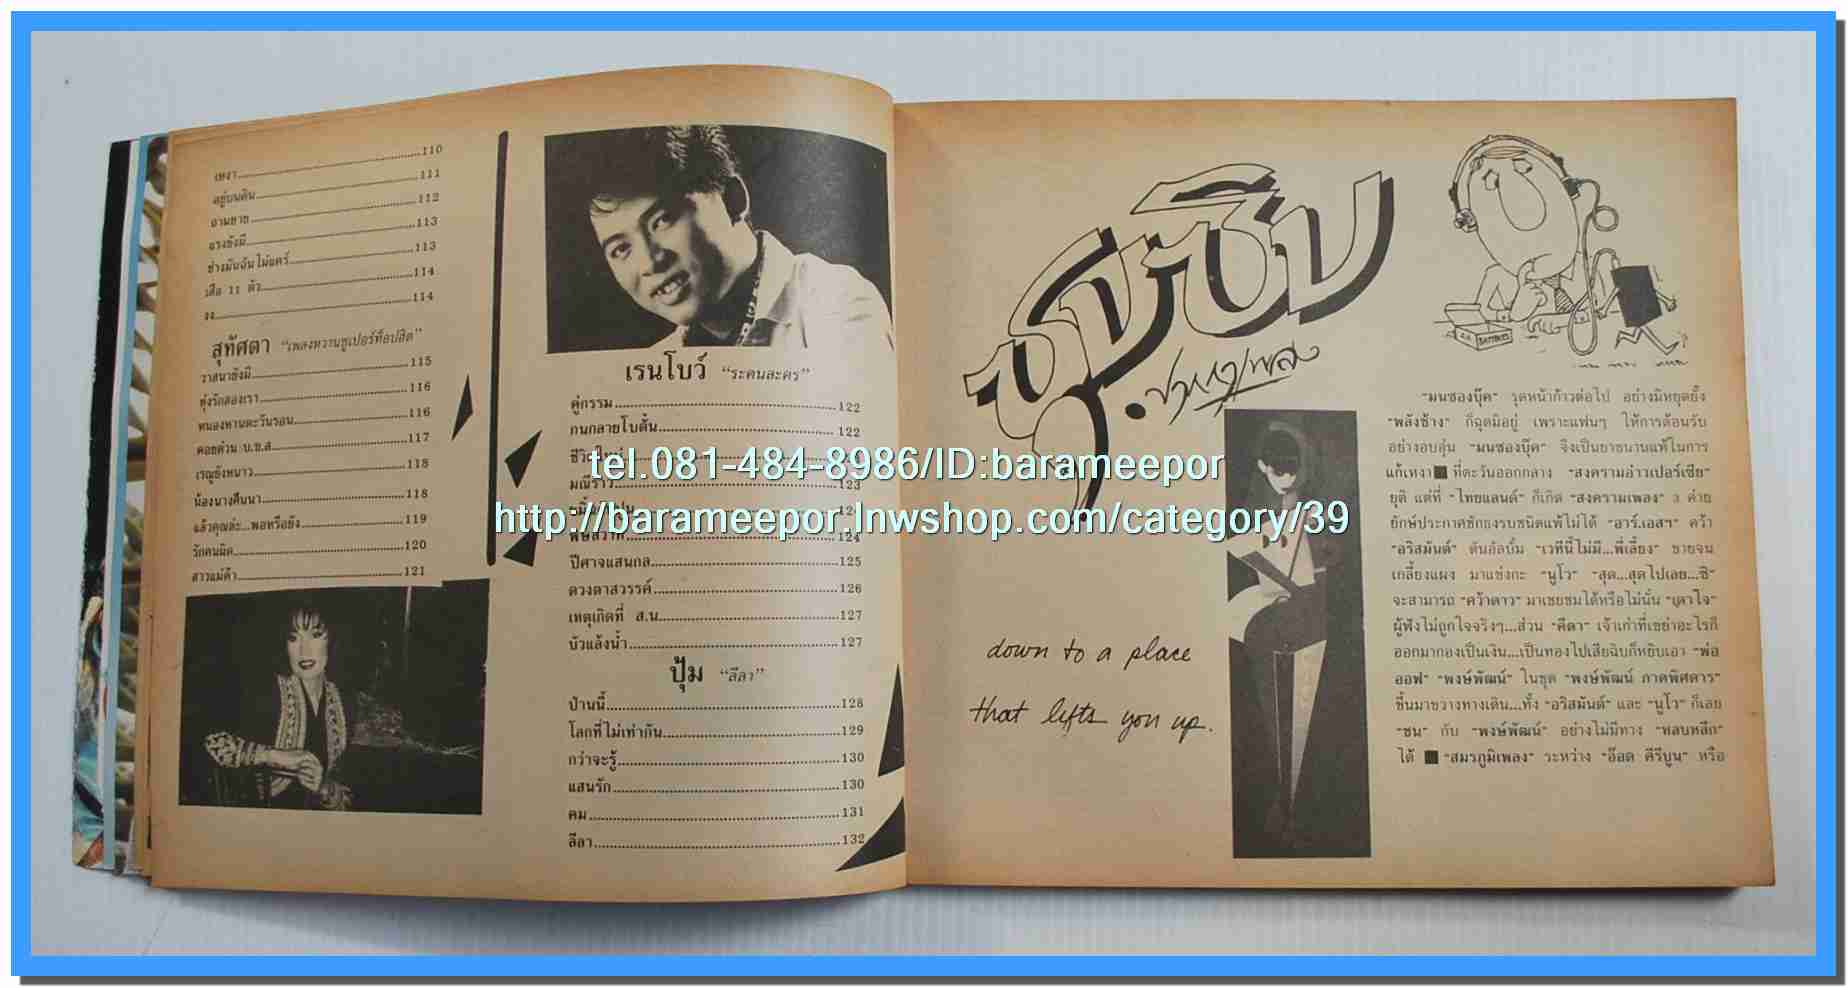 เหงา....................110
อยู่บนดิน....................111
ถามยาย....................112
แรงยังมี....................113
ช่างมันฉันไม่แคร์....................113
เสือ 11 ตัว....................114
งง....................114
สุทัศตา "เพลงหวานซูเปอร์ท็อปฮิต"
วาสนายังมี....................115
ทุ่งรักสองเรา....................116
หนองหานตะวันรอน....................116
คอยด่วน บ.ข.ส....................117
เรณูยังหนาว....................118
น้องนางคืนนา....................118
แล้วคุณล่ะ...พอหรือยัง....................119
รักคนผิด....................120
สาวแม่ค้า....................121
เรนโบว์ "ระคนละคร"
คู่กรรม....................122
กนกลายโบตั๋น....................122
ชีวิตใหม่
มณีร้าว....................123
124
ปีศาจแสนกล....................125
ดวงตาสวรรค์....................126
เหตุเกิดที่ ส.น....................127
บัวแล้งน้ำ....................127
ปุ้ม "ลีลา"
ป่านนี้....................128
โลกที่ไม่เท่ากัน....................129
กว่าจะรู้....................130
แสนรัก....................130
คม....................131
ลีลา....................132
tel.081-484-8986/ID:barameepor
http://barameepor.lnwshop.com/category/39
ซุบซิบ
ชาวเพลง
BATTERIES
down to a place
that lifts you up.
"มนซองบุ๊ค" รุดหน้าก้าวต่อไป อย่างมิหยุดยั้ง
"พลังช้าง" ก็ฉุดมิอยู่ เพราะแฟนๆ ให้การต้อนรับ
อย่างอบอุ่น "มนซองบุ๊ค" จึงเป็นยาขนานแท้ในการ
แก้เหงา ■ ที่ตะวันออกกลาง "สงครามอ่าวเปอร์เซีย"
ยุติ แต่ที่ "ไทยแลนด์" ก็เกิด "สงครามเพลง" 3 ค่าย
ยักษ์ประกาศชักธงรบชนิดแพ้ไม่ได้ "อาร์.เอสฯ" คว้า
"อริสมันต์" ดันอัลบั้ม "เวทีนี้ไม่มี...พี่เลี้ยง" ชายจน
เกลี้ยงแผง มาแข่งกะ "นูโว" "สุด...สุดไปเลย...ซิ"
จะสามารถ "คว้าดาว" มาเชยชมได้หรือไม่นั่น "เดาใจ"
ผู้ฟังไม่ถูกใจจริงๆ...ส่วน "คีตา" เจ้าเก่าที่เขย่าอะไรก็
ออกมากองเป็นเงิน...เป็นทองไปเสียฉิบก็หยิบเอา "พ่อ
ออฟ" "พงษ์พัฒน์" ในชุด "พงษ์พัฒน์ ภาคพิศดาร"
ขึ้นมาขวางทางเดิน...ทั้ง "อริสมันต์" และ "นูโว" ก็เลย
"ชน" กับ "พงษ์พัฒน์" อย่างไม่มีทาง "หลบหลีก"
ได้ ■ "สมรภูมิเพลง" ระหว่าง "อ๊อด คีรีบูน" หรือ